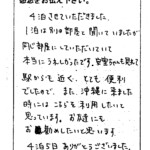 感想をお伝え下さい。
4泊させていただきました。
1泊は別の部屋と聞いていましたが
同じ部屋にしていただいていて
本当にうれしかったです。
駅からも近く、とても便利
でしたので、また、沖縄に来ました
時にはこちらを利用したいと
思っています。お友達にも
お勧めしたいと思います。
4泊5日ありがとうございました。